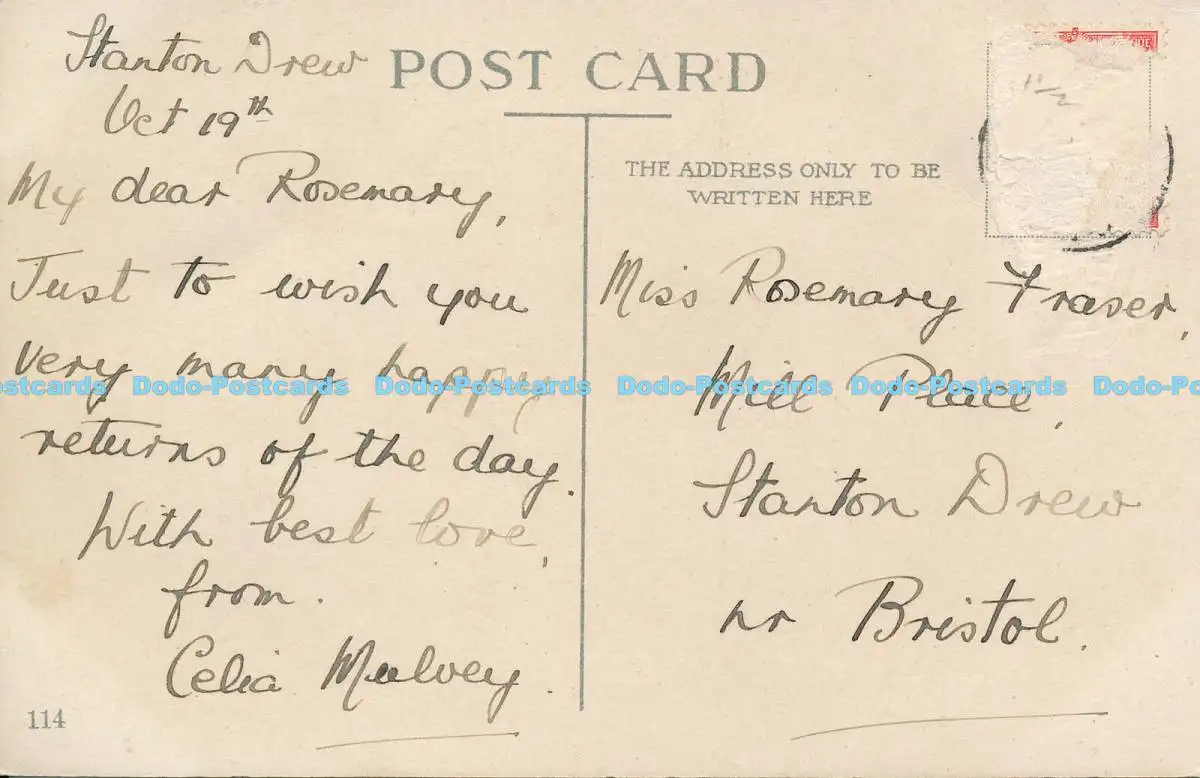 Stanton Drew
Oct 19th
My dear Rosemary,
Just to wish you
very many happy
returns of the day.
With best love,
from.
Celia Mulvey.
114
POST CARD
THE ADDRESS ONLY TO BE
WRITTEN HERE
1/2
Miss Rosemary Fraser,
Mill Place,
Stanton Drew
nr Bristol.
Dodo-Postcards Dodo-Postcards Dodo-Postcards Dodo-Postcards Dodo-Postcards Dodo-Po